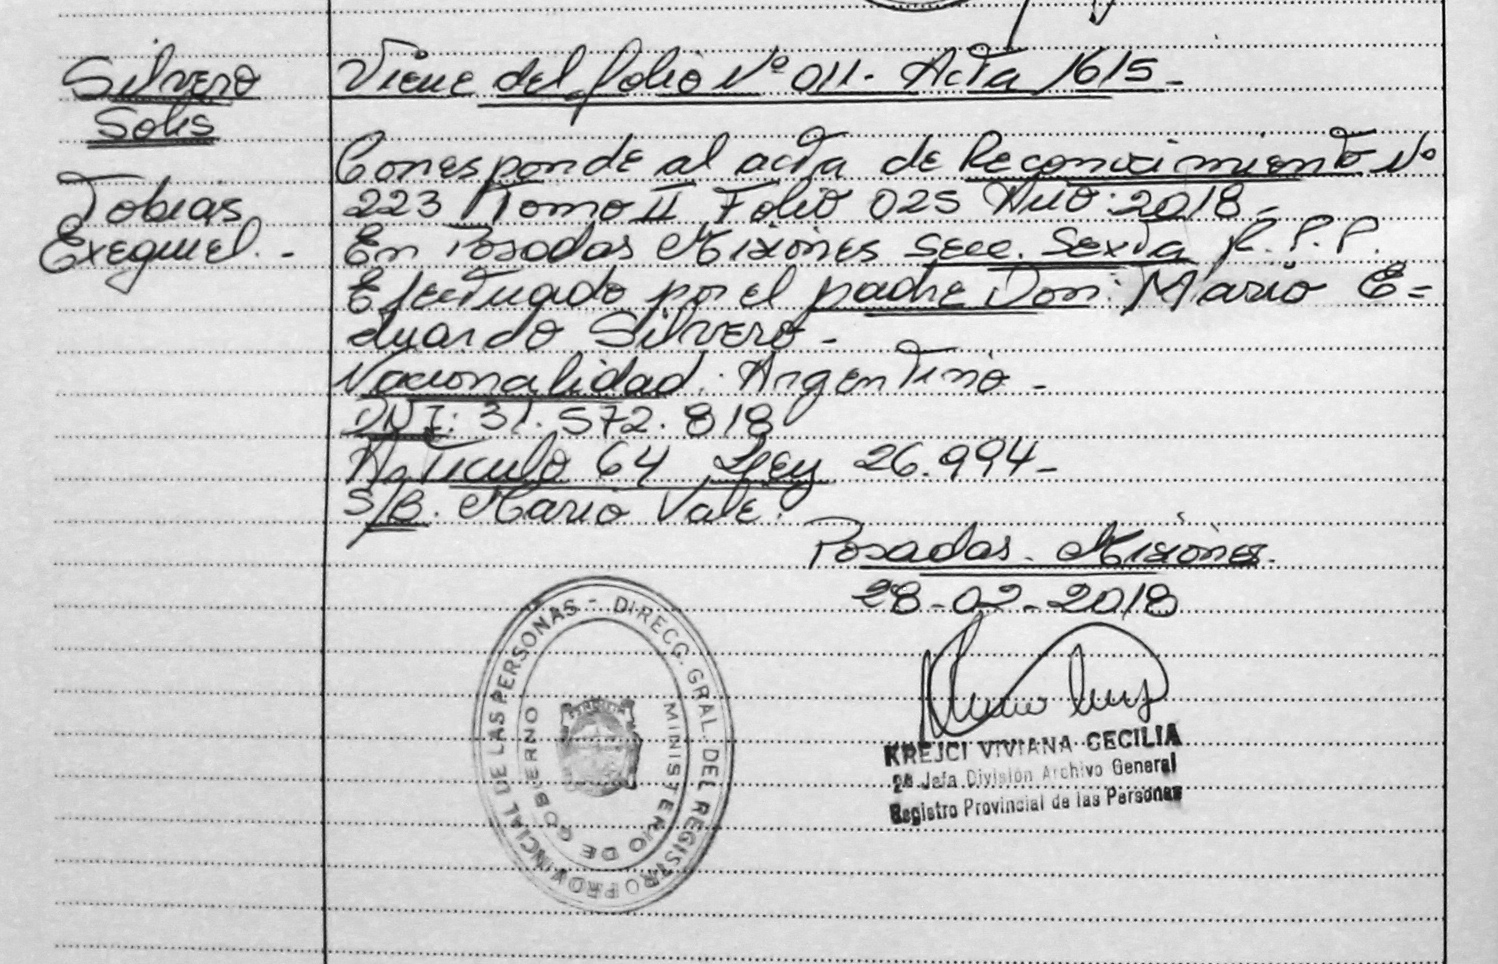 Silvero
Solis
Tobias
Exequiel.-
Viene del folio Nº 011. Acta 1615-
Corresponde al acta de Reconocimiento Nº
223 Tomo II Folio 025 Año: 2018-
En Posadas Misiones Secc. Sexta R.P.P.
Efectuado por el padre Don: Mario E=
duardo Silvero-
Nacionalidad: Argentino-
DNI: 31.572.818
Articulo 64 Ley 26.994-
S/B. Mario Vale.
Posadas. Misiones.
28-02-2018
KREJCI VIVIANA CECILIA
2ª Jefa División Archivo General
Registro Provincial de las Personas
DIRECC. GRAL. DEL REGISTRO PROVINCIAL DE LAS PERSONAS -
MINISTERIO DE GOBIERNO